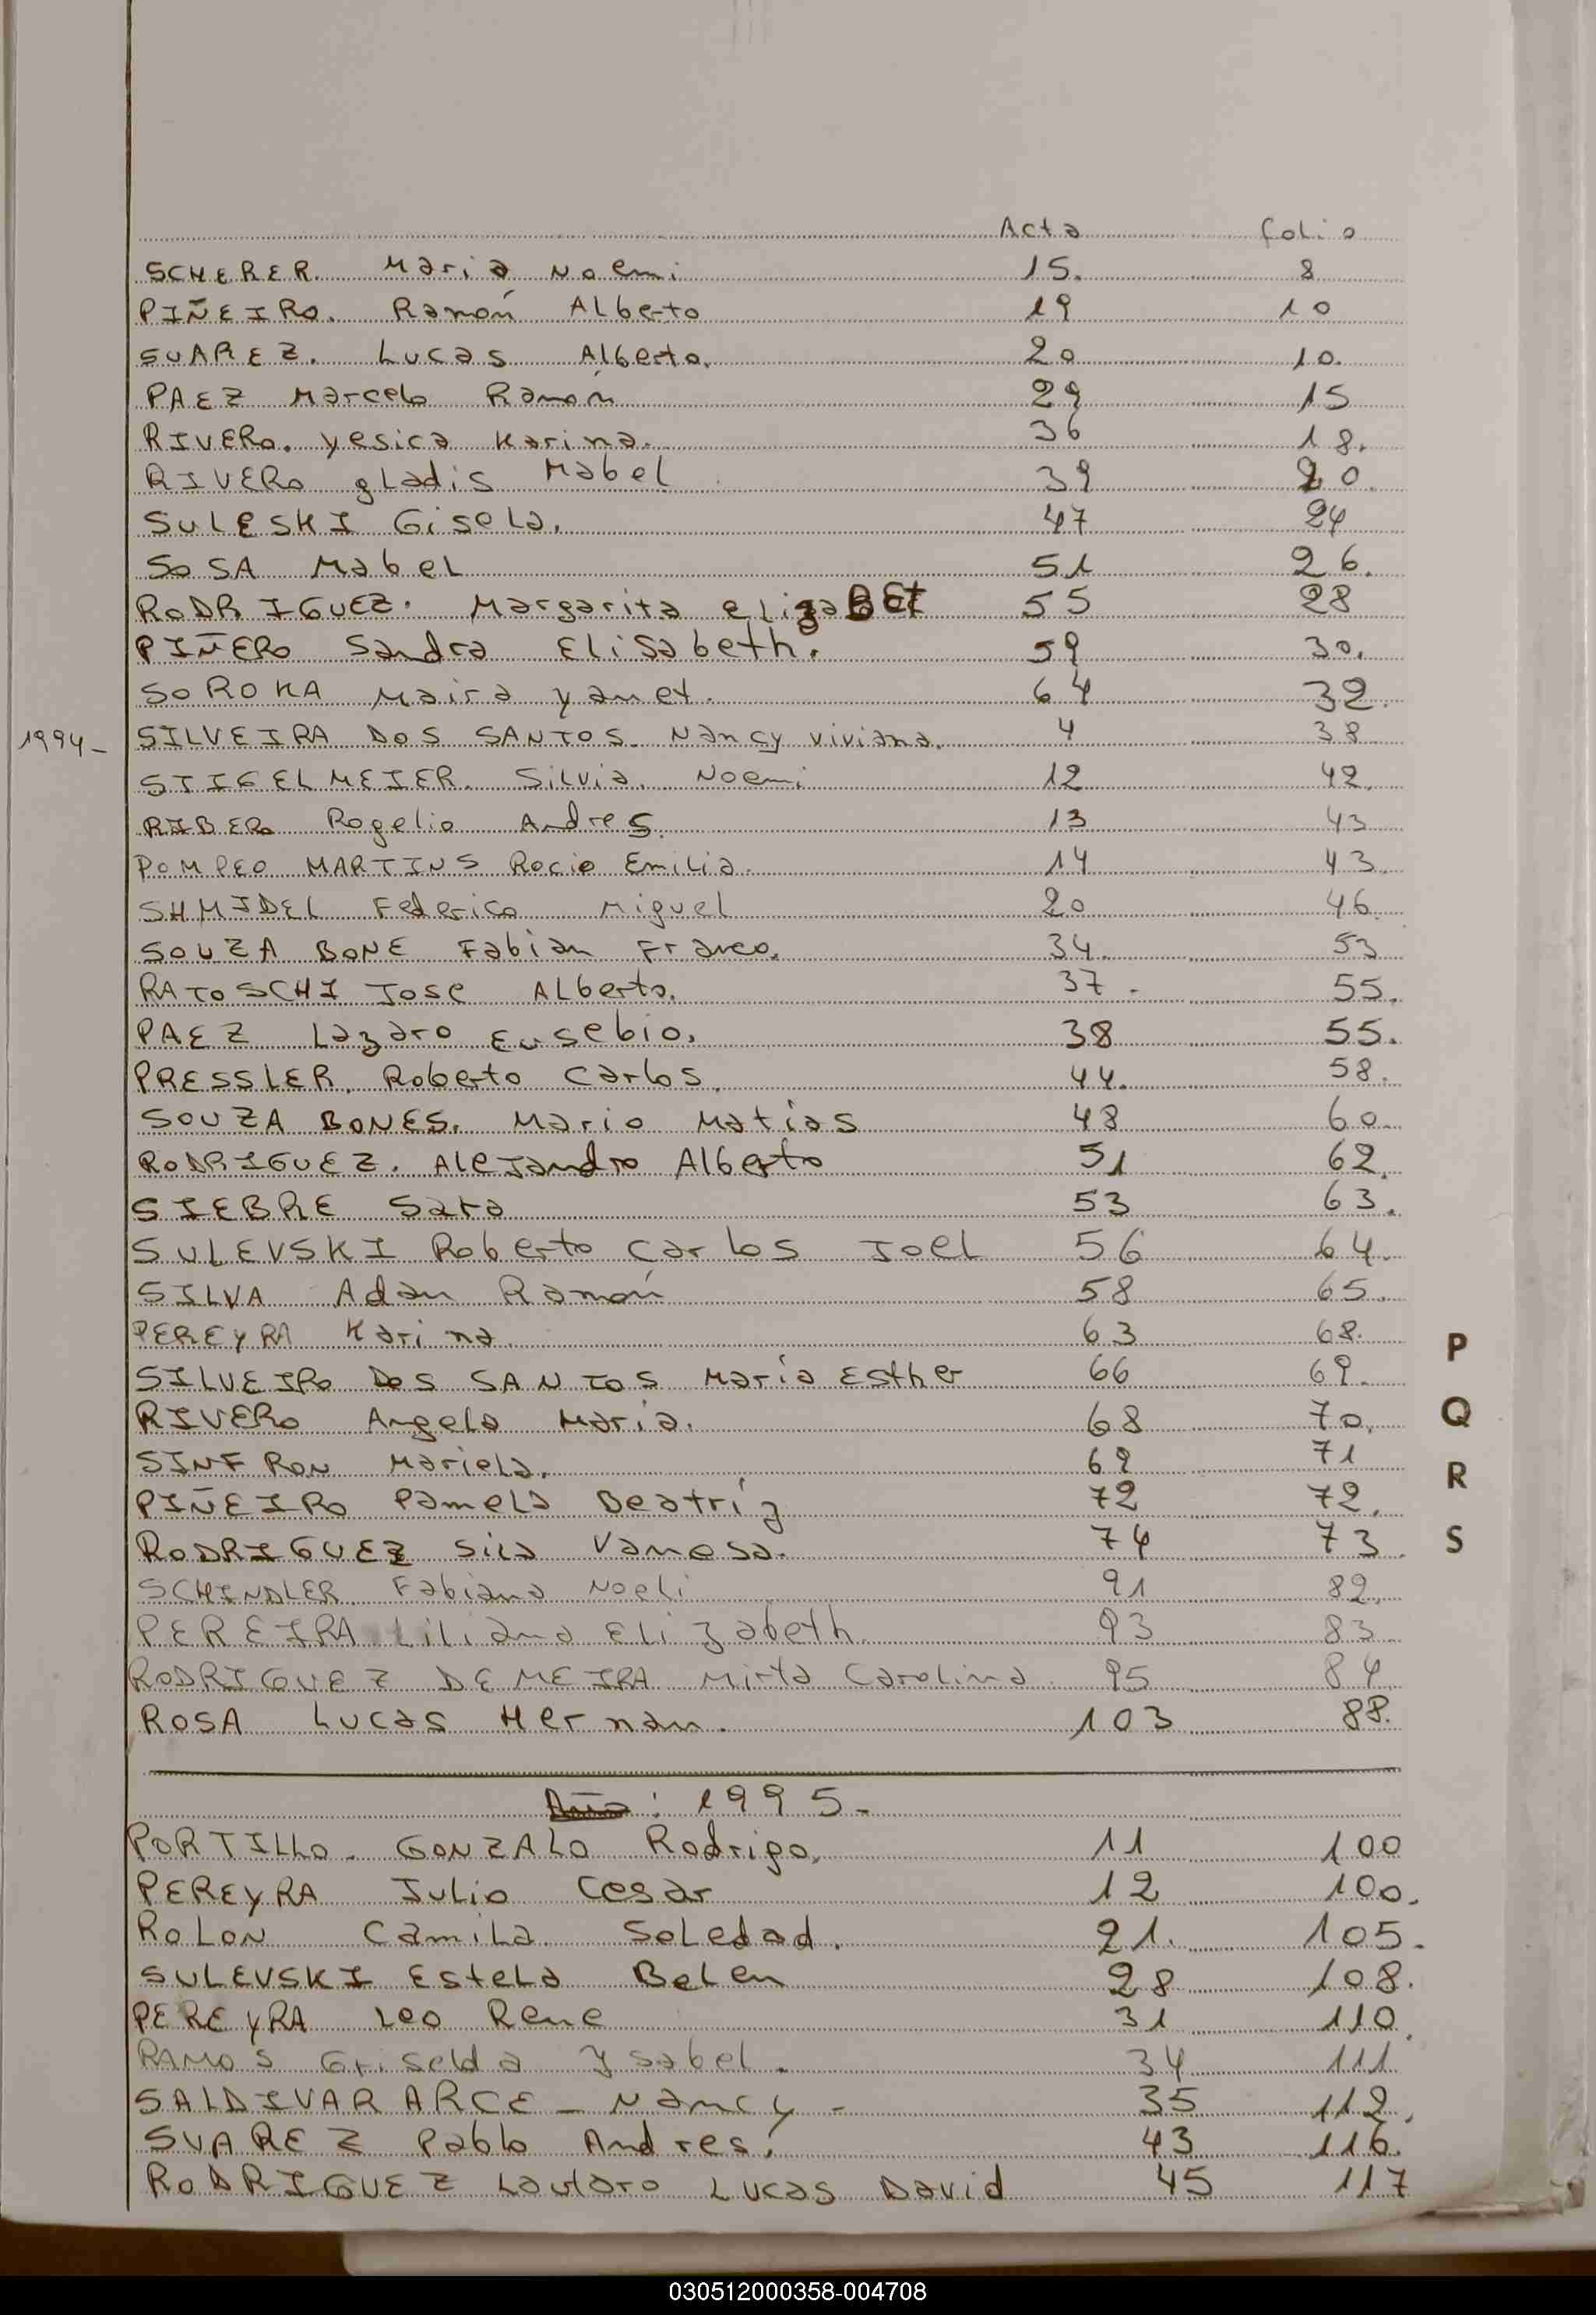 Acta folio
SCHERER. Maria Noemi 15. 8
PIÑEIRO. Ramón Alberto 19 10
SUAREZ. Lucas Alberto. 20 10.
PAEZ Marcelo Ramón 29 15
RIVERO. yesica Karina. 36 18.
RIVERO gladis Mabel 39 20.
SULESKI Gisela. 47 24
SOSA Mabel 51 26.
RODRIGUEZ. Margarita elizaBEt 55 28
PIÑERO Sandra Elisabeth. 59 30.
SOROKA Maira yanet. 64 32.
1994- SILVEIRA DOS SANTOS. Nancy viviana. 4 38
STIGELMEIER. Silvia. Noemi 12 42.
RIBERO Rogelio Andres. 13 43
POMPEO MARTINS Rocio Emilia. 14 43.
SHMIDEL Federico Miguel 20 46.
SOUZA BONE Fabian Franco. 34. 53
RATOSCHI Jose Alberto. 37. 55.
PAEZ Lazaro Eusebio. 38 55.
PRESSLER. Roberto Carlos. 44. 58.
SOUZA BONES. Mario Matias 48 60.
RODRIGUEZ. Alejandro Alberto 51 62.
SIEBRE Sara 53 63.
SULEVSKI Roberto Carlos Joel 56 64.
SILVA Adan Ramón 58 65.
PEREYRA Karina. 63 68.
SILVEIRO DOS SANTOS María Esther 66 69.
RIVERO Angela María. 68 70.
SINFRON Mariela. 69 71
PIÑEIRO Pamela Beatríz 72 72.
RODRIGUEZ Sila Vanesa. 74 73.
SCHINDLER. Fabiana Noeli 91 82.
PEREIRA Liliana Elizabeth. 93 83.
RODRIGUEZ DEMEIRA Mirta Carolina. 95 84.
ROSA Lucas Hernan. 103 88.
P
Q
R
S
Año: 1995.-
PORTILLO. GONZALO Rodrigo. 11 100
PEREYRA Julio Cesar 12 100.
ROLON Camila Soledad. 21. 105.
SULEVSKI Estela Belen 28 108.
PEREYRA Leo Rene 31 110.
RAMOS Griselda Ysabel. 34 111
SALDIVAR ARCE - Nancy - 35 112.
SUAREZ Pablo Andres. 43 116.
RODRIGUEZ Lautaro Lucas David 45 117
030512000358-004708